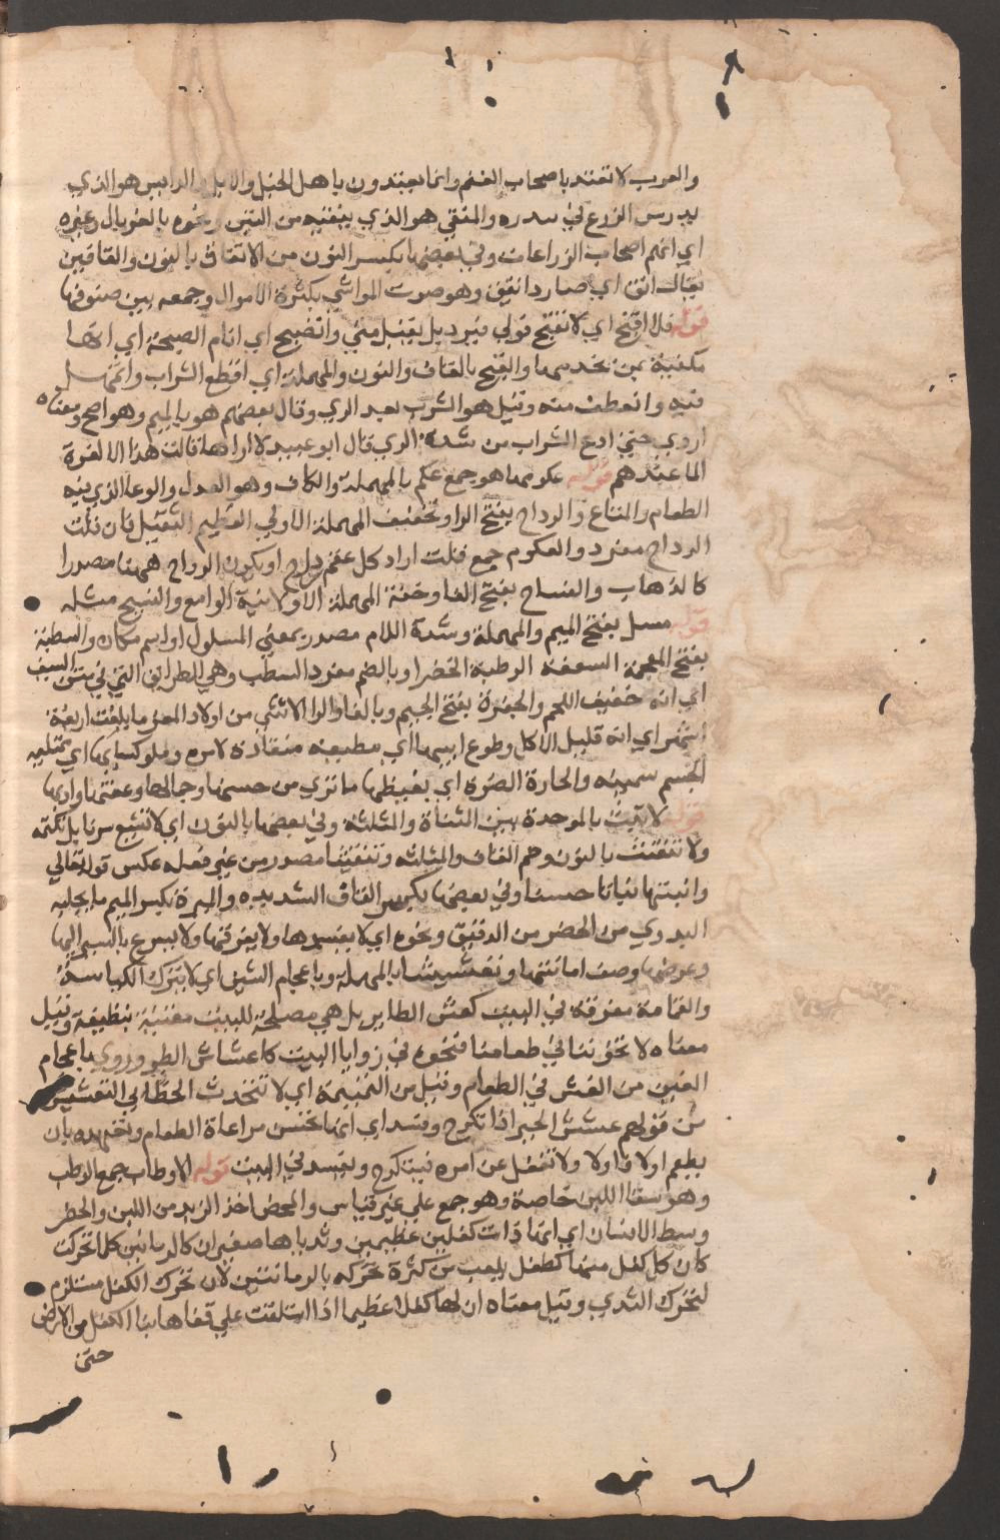 والعرب لا تعتد باصحاب الغنم وانما يعتدون باهل الخيل والابل والدايس هو الذي
يدرس الزرع في بيدره والمنقي هو الذي ينقيه من التبن ونحوه بالغربال وغيره
اي انهم اصحاب الزراعات وفي بعضها بكسر النون من الانقاق بالنون والقافين
يقال انق اي صار ذا نقيق وهو صوت المواشي بكثرة الاموال وجمعه بين صنوفها
قوله فلا اقبح اي لا تقبح قولي فيرد بل يقبل مني واتصبح اي انام الصبحة اي انها
مكفية بمن يخدمها والتقنح بالقاف والنون والمهملة اي اقطع الشراب واتمهل
فيه وقيل هو الشرب بعد الري وقال بعضهم هو بالميم وهو اصح ومعناه
اروي حتي ادع الشراب من شدة الري قال ابو عبيد لا اراها قالت هذا الا لعزة
الما عندهم قوله عكومها هو جمع عكم بالمهملة والكاف وهو العدل والوعا الذي فيه
الطعام والمتاع والرداح بفتح الرا وتخفيف المهملة الاولي العظيم الثقيل فان قلت
الرداح مفرد والعكوم جمع قلت اراد كل عكم رداح او يكون الرداح ههنا مصدرا
كالذهاب والفساح بفتح الفا وخفة المهملة الاولي الواسع والفسيح مثله
قوله مسل بفتح الميم والمهملة وشدة اللام مصدر بمعني المسلول او اسم مكان والشطبة
بفتح المعجمة السعفة الرطبة الخضرا وبالضم مفرد الشطب وهي الطرايق التي في متن السيف
اي انه خفيف اللحم والجفرة بفتح الجيم وبالفا والرا الانثي من اولاد المعز ما بلغت اربعة
اشهر اي انه قليل الاكل وطوع ابيها اي مطيعة منقادة لامره وملء كسايها اي ممتلية
الجسم سمينة والجارة الضرة اي يغيظها ما تري من حسنها وجمالها وعفتها وادبها
قوله لا تبث بالموحدة بين المثناة والمثلثة وفي بعضها بالنون اي لا تشيع سرنا بل تكتمه
ولا تنقث بالنون وضم القاف والمثلثة وتنقيثا مصدر من غير فعله عكس قوله تعالي
وانبتها نباتا حسنا وفي بعضها بكسر القاف الشديدة والميرة بكسر الميم ما يجلبه
البدوي من الحضر من الدقيق ونحوه اي لا تفسدها ولا تفرقها ولا تسرع بالسير اليها
وغرضها وصف امانتها وتعشيشا بالمهملة وباعجام الشين اي لا تترك الكناسة
والقمامة مفرقة في البيت كعش الطاير بل هي مصلحة للبيت معتنية بتنظيفه وقيل
معناه لا تخوننا في طعامنا فتخبوه في زوايا البيت كاعشاش الطير وروي باعجام
الغين من الغش في الطعام وقيل من النميمة اي لا تتحدث الخطابي التعشيش
من قولهم عشش الخبز اذا تكرج وفسد اي انها تحسن مراعاة الطعام وتتعهده بان
يطعم اولا فاولا ولا تغفل عن امره فيتكرج ويفسد في البيت قوله الاوطاب جمع الوطب
وهو سقا اللبن خاصة وهو جمع علي غير قياس والمخض اخذ الزبد من اللبن والخصر
وسط الانسان اي انها ذات كفلين عظيمين وثدياها صغيران كالرمانتين كلما تحركت
كان كل كفل منها كطفل يلعب من كثرة تحركه بالرمانتين لان تحرك الكفل مستلزم
لتحرك الثدي وقيل معناه ان لها كفلا عظيما اذا استلقت علي قفاها نبا الكفل من الارض
حتي